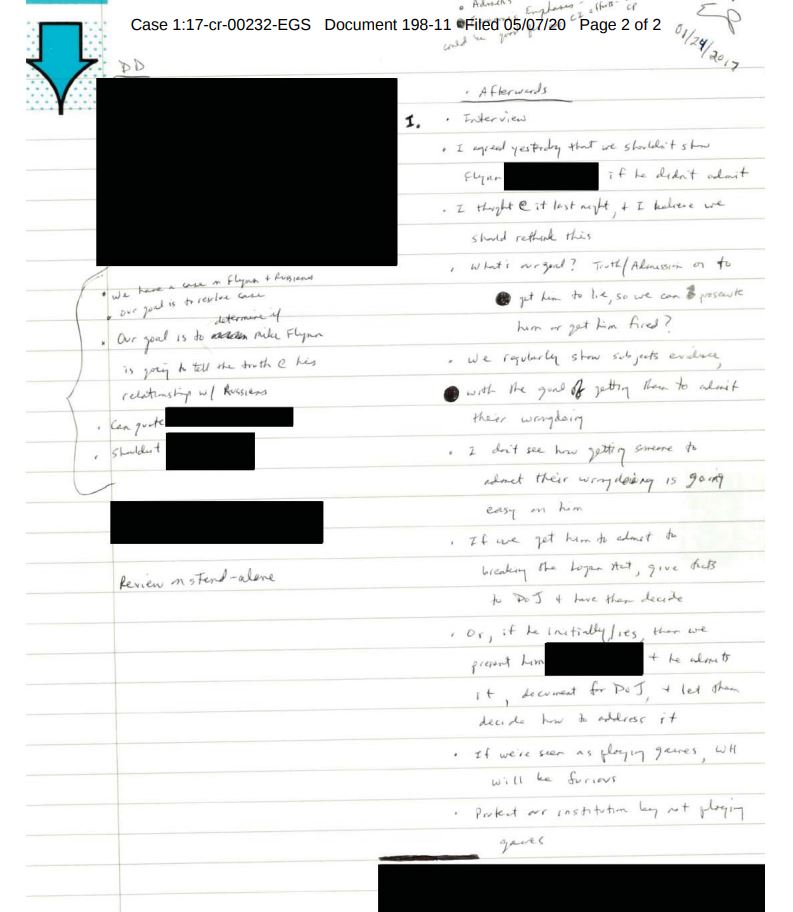 • Advisers
Emphases - CI efforts CP
Case 1:17-cr-00232-EGS Document 198-11 Filed 05/07/20 Page 2 of 2
could be good CI
EP
01/24/2017
DD
• We have a case on Flynn + Russians
• Our goal is to resolve case
determine if
• Our goal is to Mike Flynn
is going to tell the truth @ his
relationship w/ Russians
• Can quote
• Shouldn't
Review on stand-alone
• Afterwards
I. • Interview
• I agreed yesterday that we shouldn't show
Flynn if he didn't admit
• I thought @ it last night, + I believe we
should rethink this
• What's our goal? Truth/Admission or to
get him to lie, so we can prosecute
him or get him fired?
• We regularly show subjects evidence,
with the goal of getting them to admit
their wrongdoing
• I don't see how getting someone to
admit their wrongdoing is going
easy on him
• If we get him to admit to
breaking the Logan Act, give facts
to DOJ + have them decide
• Or, if he initially lies, then we
present him + he admits
it, document for DOJ, + let them
decide how to address it
• If we're seen as playing games, WH
will be furious
• Protect our institution by not playing
games